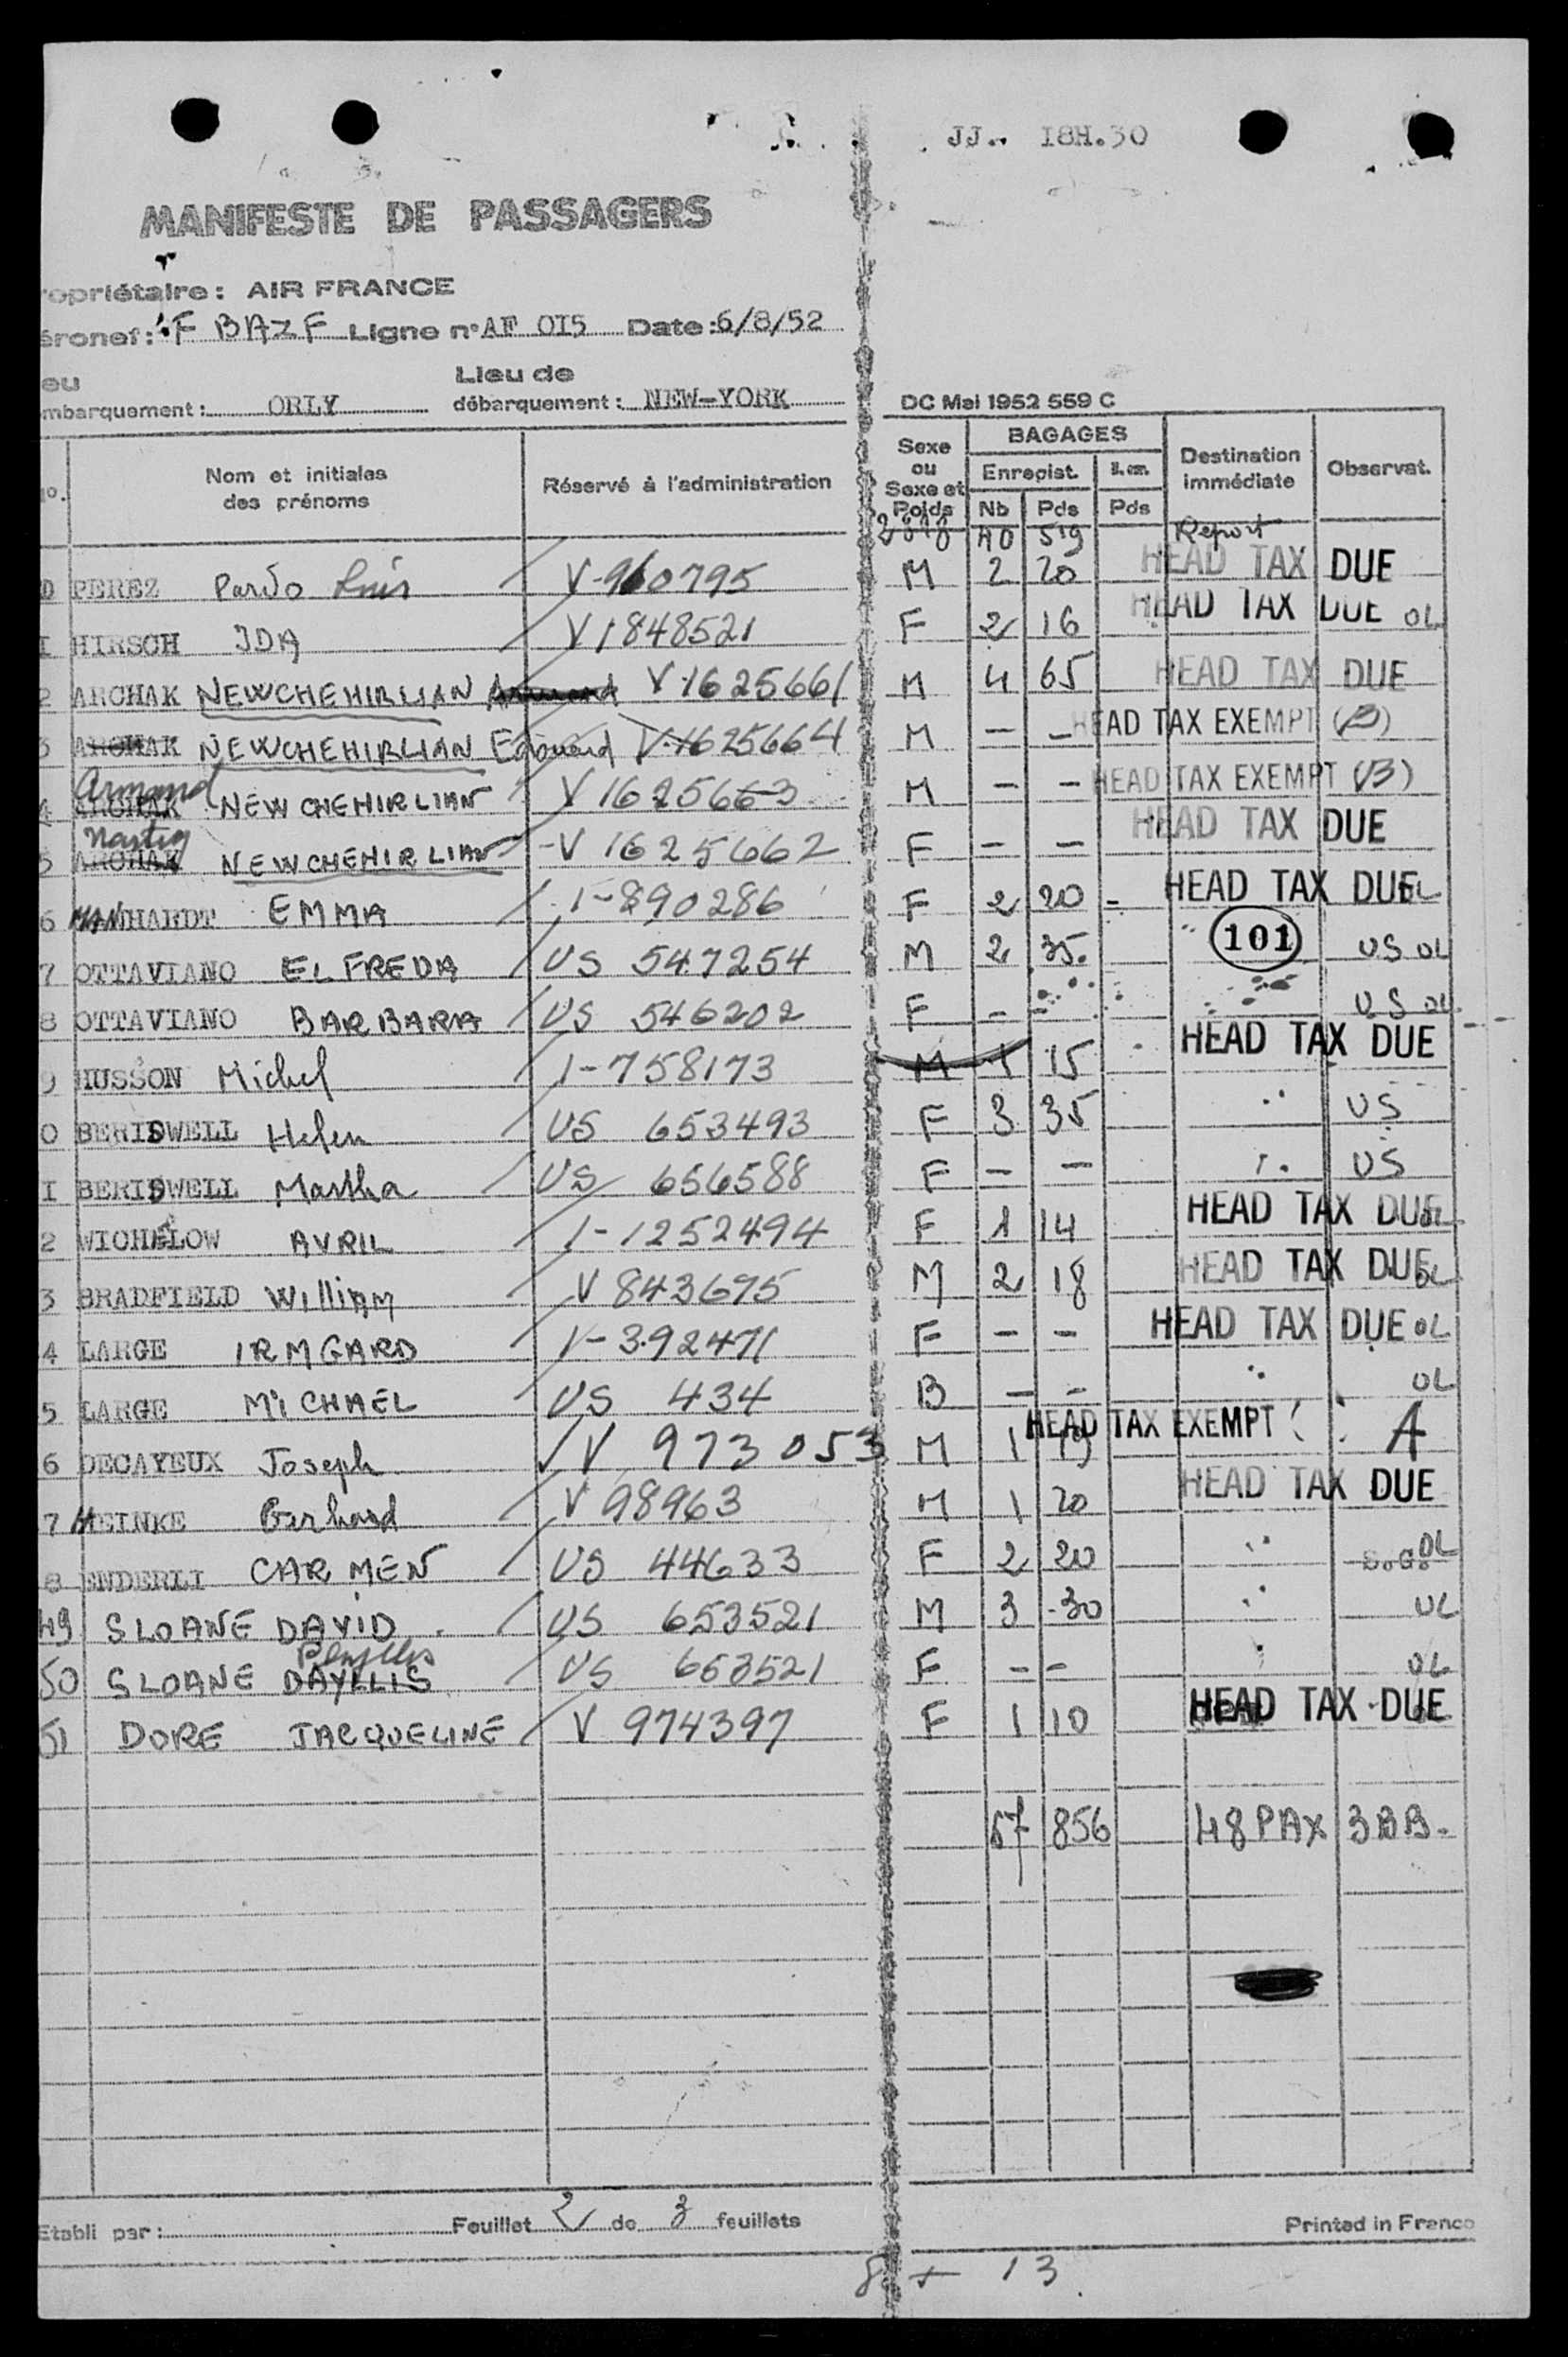 JJ.. I8H.30
MANIFESTE DE PASSAGERS
ropriétaire: AIR FRANCE
éronef: F BAZF Ligne n° AF OI5 Date: 6/8/52
eu Lieu de
mbarquement: ORLY débarquement: NEW-YORK
DC Mai 1952 559 C
Nom et initiales des prénoms
Réservé à l'administration
Sexe ou Sexe et Poids
BAGAGES
Enregist.
Nb Pds Pds
Destination immédiate
Observat.
40 519 Report
PEREZ Pardo Luis V-960795 M 2 20 HEAD TAX DUE
I HIRSCH IDA V1848521 F 2 16 HEAD TAX DUE OL
2 ARCHAK NEWCHEHIRLIAN V-1625661 M 4 65 HEAD TAX DUE
3 ARCHAK NEWCHEHIRLIAN Edouard V-1625664 M - - HEAD TAX EXEMPT (B)
Armand
4 ARCHAK NEWCHEHIRLIAN V 1625663 M - - HEAD TAX EXEMPT (B)
5 ARCHAK NEWCHEHIRLIAN -V 1625662 F - - HEAD TAX DUE
6 MANHARDT EMMA I-890286 F 2 20 - HEAD TAX DUE OL
7 OTTAVIANO ELFREDA US 547254 M 2 35. " 101 US OL
8 OTTAVIANO BARBARA US 546202 F - - US OL
9 HUSSON Michel I-758173 M 1 15 HEAD TAX DUE
0 BERIDWELL Helen US 653493 F 3 35 " US
I BERIDWELL Martha US 656588 F - - " US
2 WICHELOW AVRIL I-1252494 F 1 14 HEAD TAX DUE OL
3 BRADFIELD William V 843695 M 2 18 HEAD TAX DUE OL
4 LARGE IRMGARD I-392471 F - - HEAD TAX DUE OL
5 LARGE MiCHAEL US 434 B - - " OL
6 DECAYEUX Joseph V 973053 M 1 19 HEAD TAX EXEMPT A
7 HEINKE Gerhard V 98963 M 1 20 HEAD TAX DUE
8 ENDERLI CARMEN US 44633 F 2 20 " S.G. OL
49 SLOANE DAVID US 653521 M 3 -30 " OL
Phyllis
50 SLOANE DAYLLIS US 653521 F - - " OL
51 DORE JACQUELINE V 974397 F 1 10 HEAD TAX DUE
57 856 48 PAX 3BB.
Etabli par: Feuillet 2 de 3 feuillets
Printed in France
+ 13